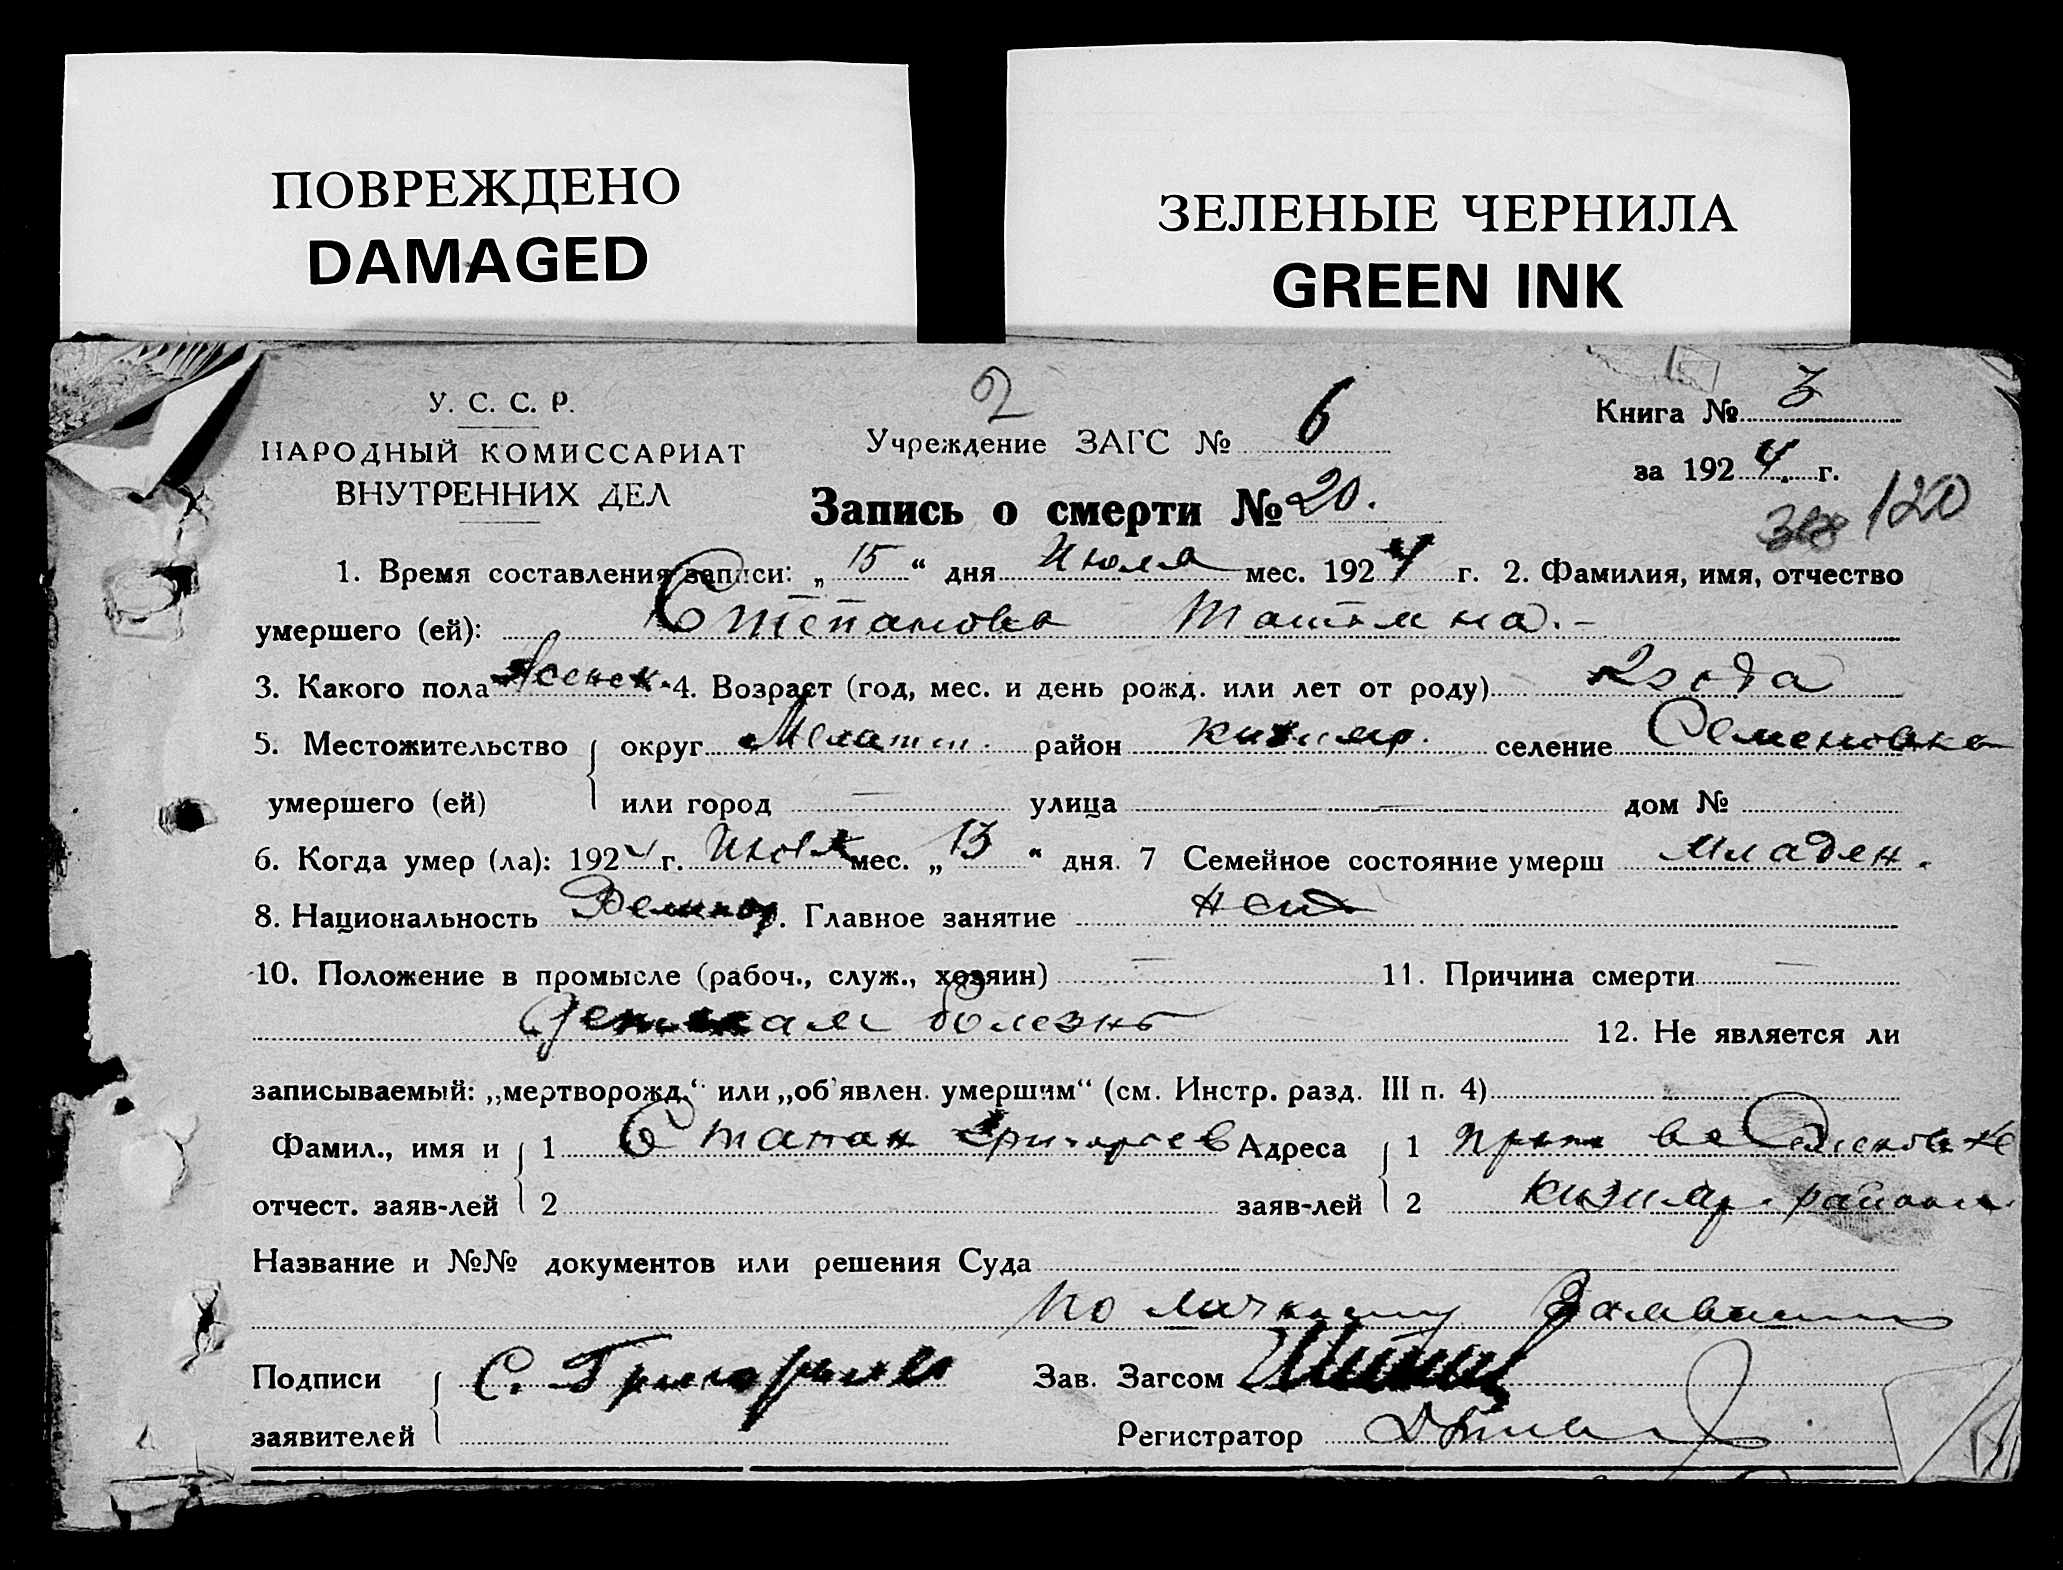 ПОВРЕЖДЕНО
DAMAGED
ЗЕЛЕНЫЕ ЧЕРНИЛА
GREEN INK
У. С. С. Р.
НАРОДНЫЙ КОМИССАРИАТ
ВНУТРЕННИХ ДЕЛ
2
Учреждение ЗАГС № 6
Запись о смерти № 20.
Книга № 3
за 1924 г.
120
1. Время составления записи: „15“ дня Июля мес. 1924 г. 2. Фамилия, имя, отчество
умершего (ей): Степанова
3. Какого пола женск. 4. Возраст (год, мес. и день рожд. или лет от роду) 2 года
5. Местожительство округ район селение Семеновка
умершего (ей) или город — улица — дом №
6. Когда умер (ла): 1924 г. Июля мес. „13“ дня. 7 Семейное состояние умерш младен.
8. Национальность Главное занятие
10. Положение в промысле (рабоч., служ., хозяин) — 11. Причина смерти —
Детская болезнь
12. Не является ли
записываемый: „мертворожд.“ или „об'явлен. умершим“ (см. Инстр. разд. III п. 4)
Фамил., имя и 1 Степан Григорьев Адреса 1
отчест. заяв-лей 2 заяв-лей 2 района
Название и №№ документов или решения Суда
По личному
Подписи С. Григорьев Зав. Загсом
заявителей Регистратор